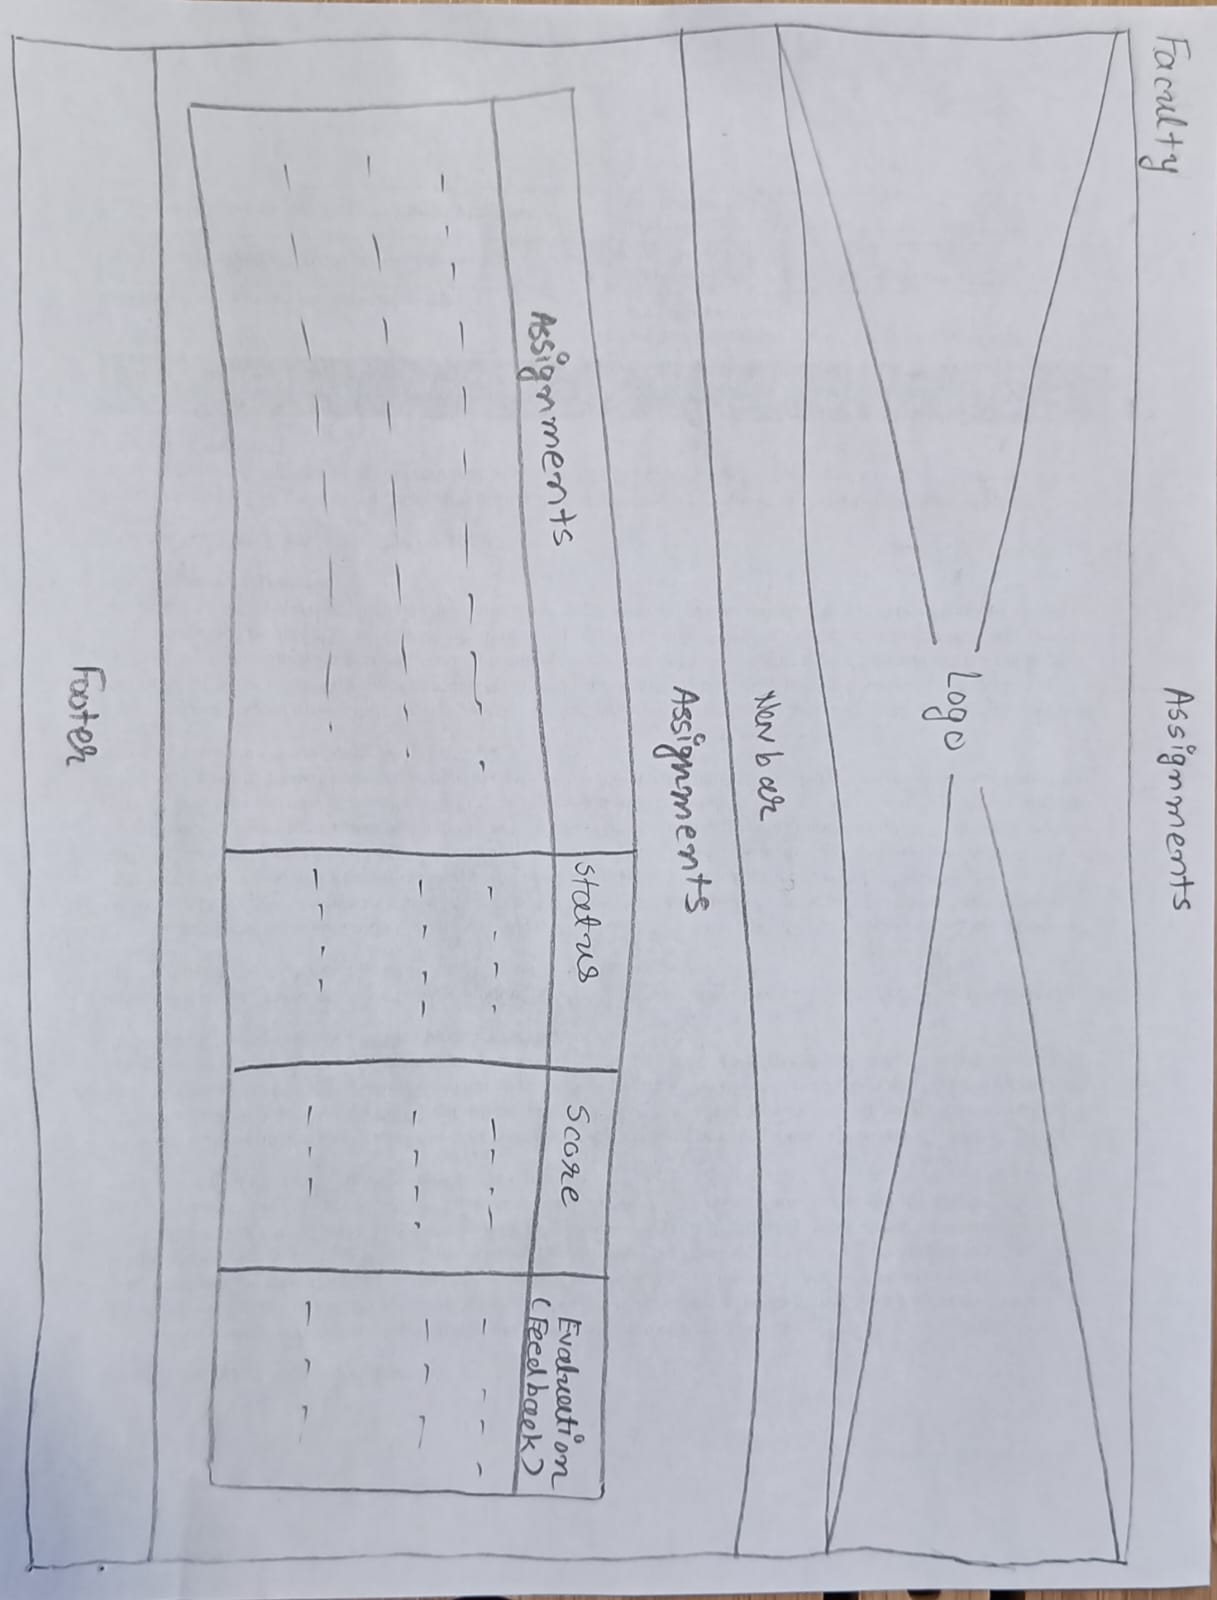 Faculty
Assignments
Logo
Navbar
Assignments
Assignments
Status
Score
Evaluation
(Feedback)
Footer